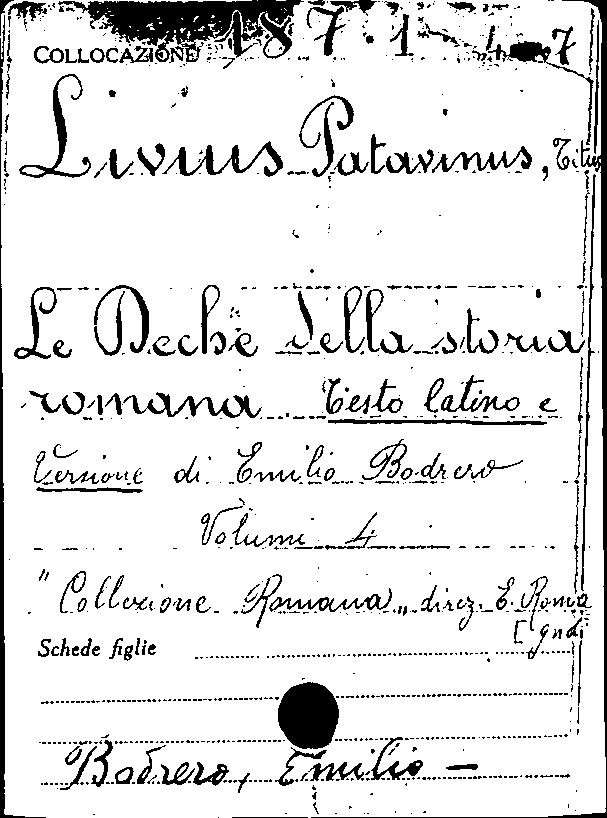 COLLOCAZIONE 187.1 4 7
Livius Patavinus, Titus
Le Deche della storia
romana Testo latino e
Versione di Emilio Bodrero
Volumi 4
"Collezione Romana" direz. E. Roma
[gnoli
Schede figlie
Bodrero, Emilio —